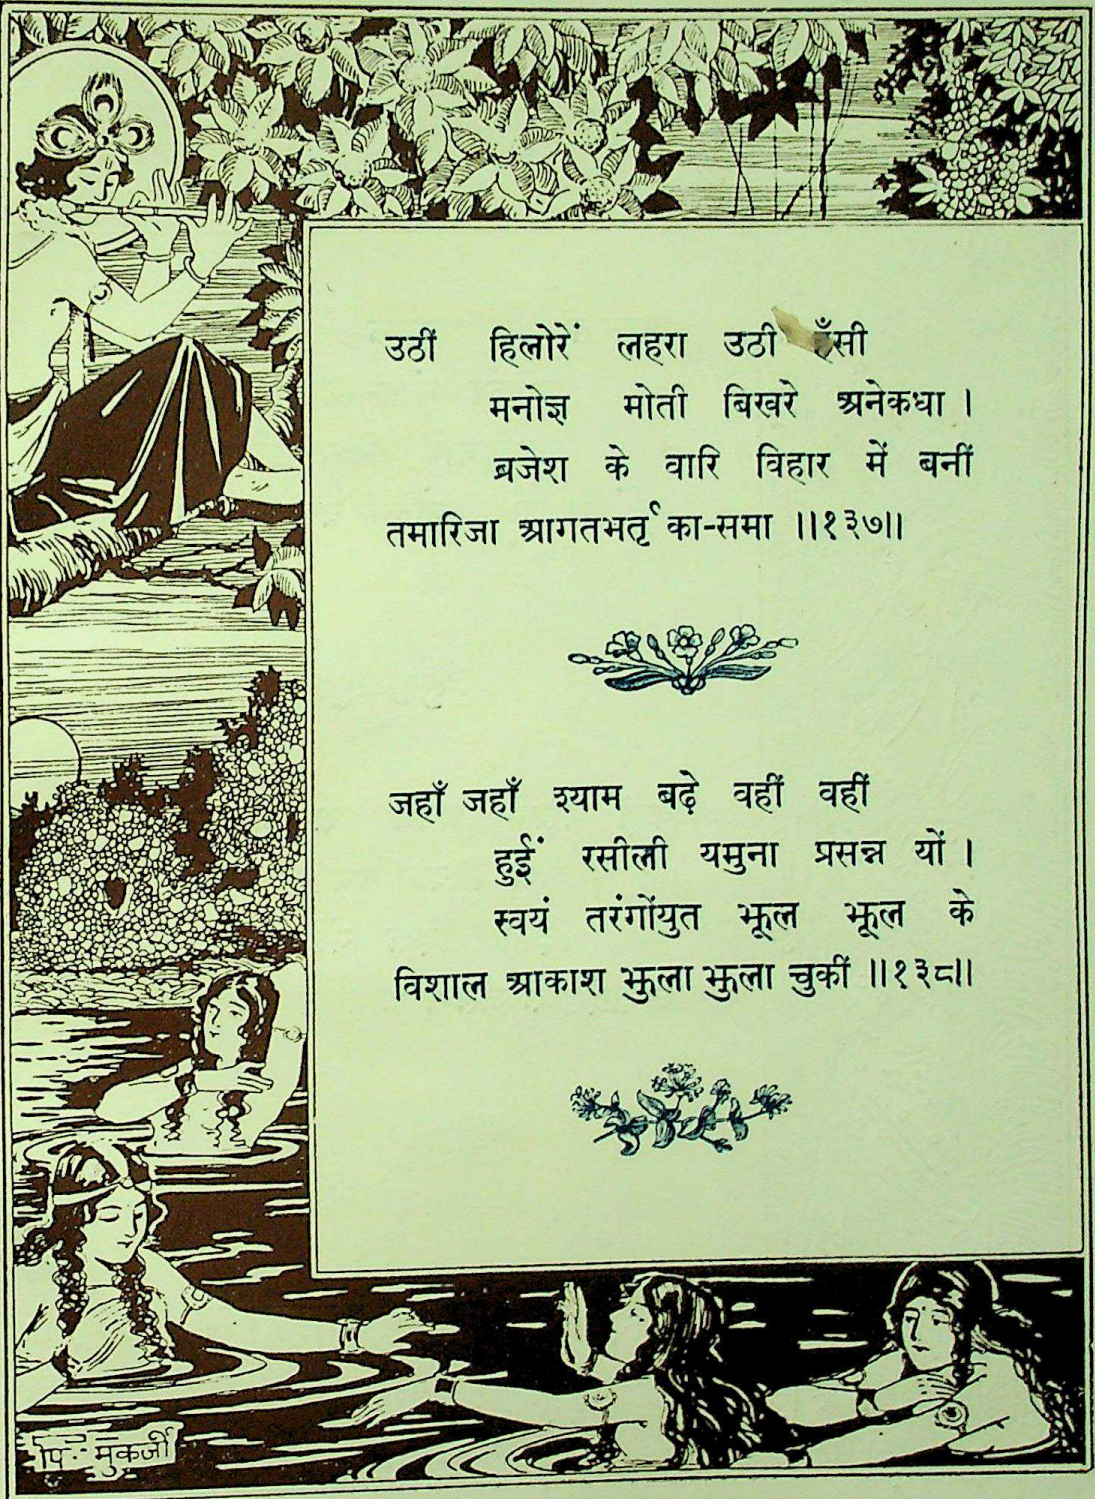 उठीं हिलोरें लहरा उठी हँसी
मनोज्ञ मोती बिखरे अनेकधा ।
ब्रजेश के वारि विहार में बनीं
तमारिजा आगतभर्तृका-समा ॥१३७॥
जहाँ जहाँ श्याम बढ़े वहीं वहीं
हुईं रसीली यमुना प्रसन्न यों ।
स्वयं तरंगोंयुत झूल झूल के
विशाल आकाश झुला झुला चुकीं ॥१३८॥
पि. मुकर्जी